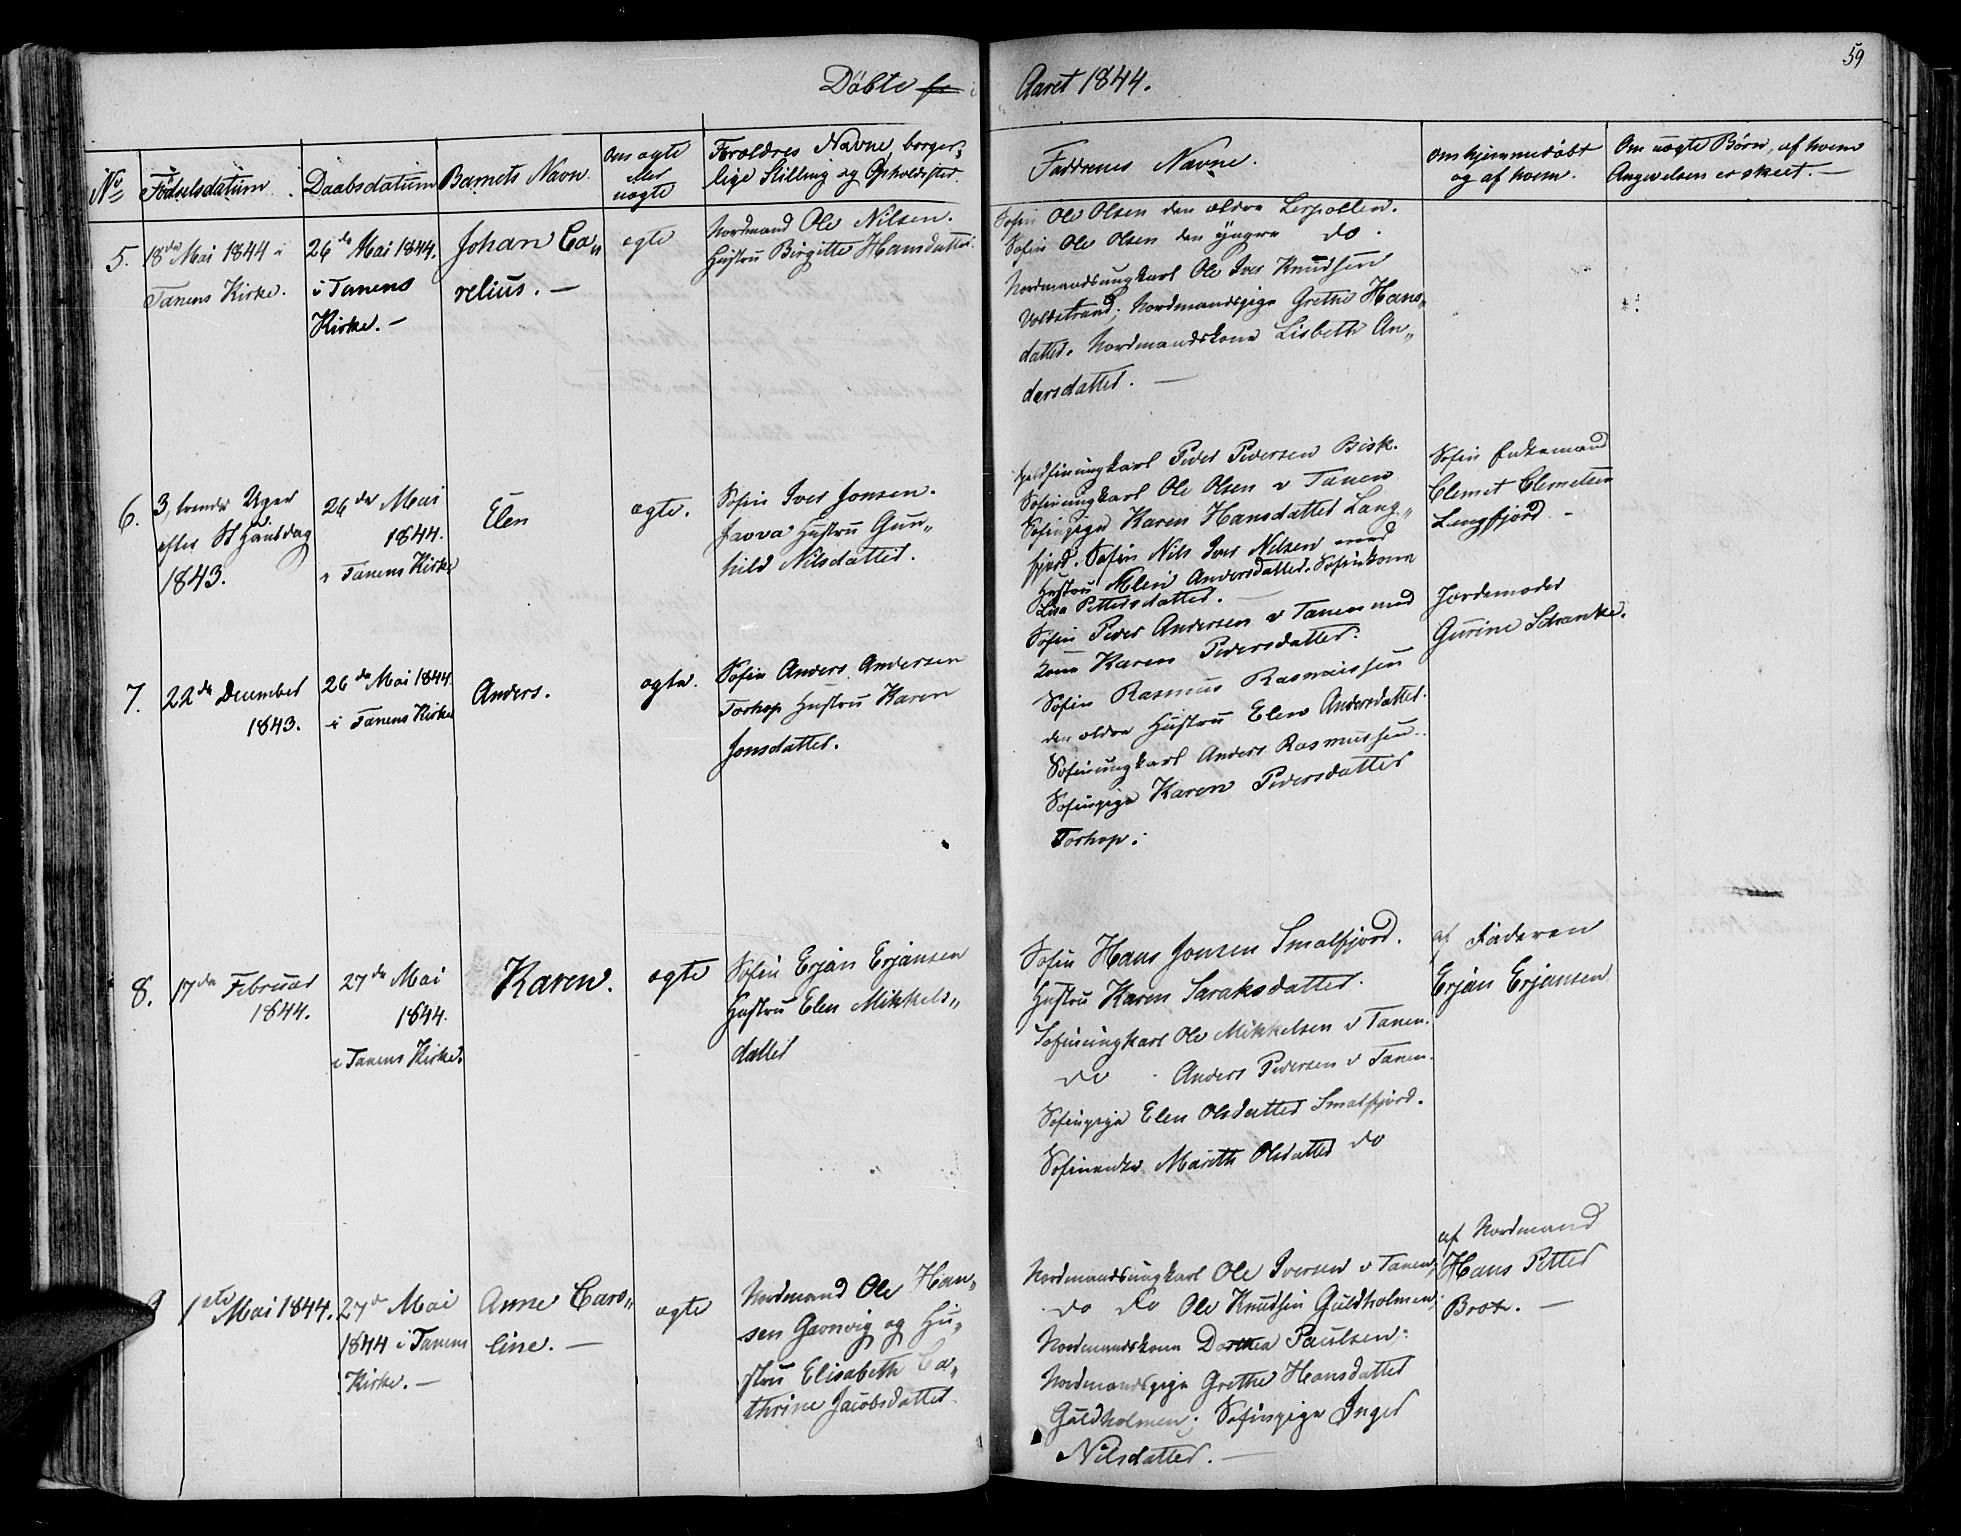 59
Döbte i Aaret 1844.
No
Födselsdatum.
Daabsdatum
Barnets Navn
Om ægte
eller
uægte
Forældres Navne, borger-
lige Stilling og Opholdssted.
Faddrenes Navne.
Om hjemmedöbt
og af hvem.
Om uægte Børn, af hvem
Angivelsen er skeet. —
5.
18de Mai 1844 i
Tanens Kirke.
26de Mai 1844.
i Tanens
Kirke. —
Johan Co„
relius. —
egte
Nordmand Ole Nilsen.
Hustru Birgitte Hansdatter.
Søfin Ole Olsen den ældre Lerpollen.
Søfin Ole Olsen den yngre do.
Nordmandsungkarl Ole Iver Knudsen
Voldstrand, Nordmandspige Grethe Hans„
datter. Nordmandskone Lisbeth An„
dersdatter. —
6.
3, trende Uger
efter St Hansdag
1843.
26de Mai
1844.
i Tanens Kirke
Elen
ægte.
Søfin Iver Jonsen.
Javva Hustru Gun„
hild Nilsdatter.
Fjeldfinungkarl Peder Pedersen Bisk.
Søfinungkarl Ole Olsen v Tanen
Søfinpige Karen Hansdatter Lang„
fjord. Søfin Nils Iver Nilsen med
Hustru Elen Andersdatter. Søfinkone
Lisa Pettersdatter. —
Søfin Enkemand
Clemet Clemetsen
Langfjord –
7.
22de December
1843.
26de Mai 1844.
i Tanens Kirke
Anders.
ægte.
Søfin Anders Andersen
Torhop Hustru Karen
Jonsdatter.
Søfin Peder Andersen v Tanen med
kone Karen Pedersdatter.
Søfin Rasmus Rasmussen
den ældre Hustru Elen Andersdatter.
Søfinungkarl Anders Rasmussen.
Søfinpige Karen Pedersdatter
Torhop.
Jordemoder
Gurine Schanke.
8.
17de Februar
1844.
27de Mai
1844.
i Tanens Kirke.
Karen.
ægte
Søfin Erjan Erjansen
Hustru Elen Mikkels„
datter
Søfin Hans Jonsen Smalfjord.
Hustru Karen Saraksdatter.
Søfinungkarl Ole Mikkelsen v Tanen.
do Anders Pedersen v Tanen.
Søfinpige Elen Olsdatter Smalfjord.
Søfinenke Marith Olsdatter do
af Faderen
Erjan Erjansen
9
1ste Mai 1844.
27de Mai
1844 i Tanens
Kirke. —
Anne Caro„
line. —
ægte
Nordmand Ole Han„
sen Gavnvig og Hu„
stru Elisabeth Ca„
thrine Jacobsdatter
Nordmandsungkarl Ole Iversen v Tanen;
do do Ole Knudsen Guldholmen;
Nordmandskone Dorthea Paulsen;
Nordmandspige Grethe Hansdatter
Guldholmen; Søfinpige Inger
Nilsdatter. —
af Nordmand
Hans Petter
Brox. —